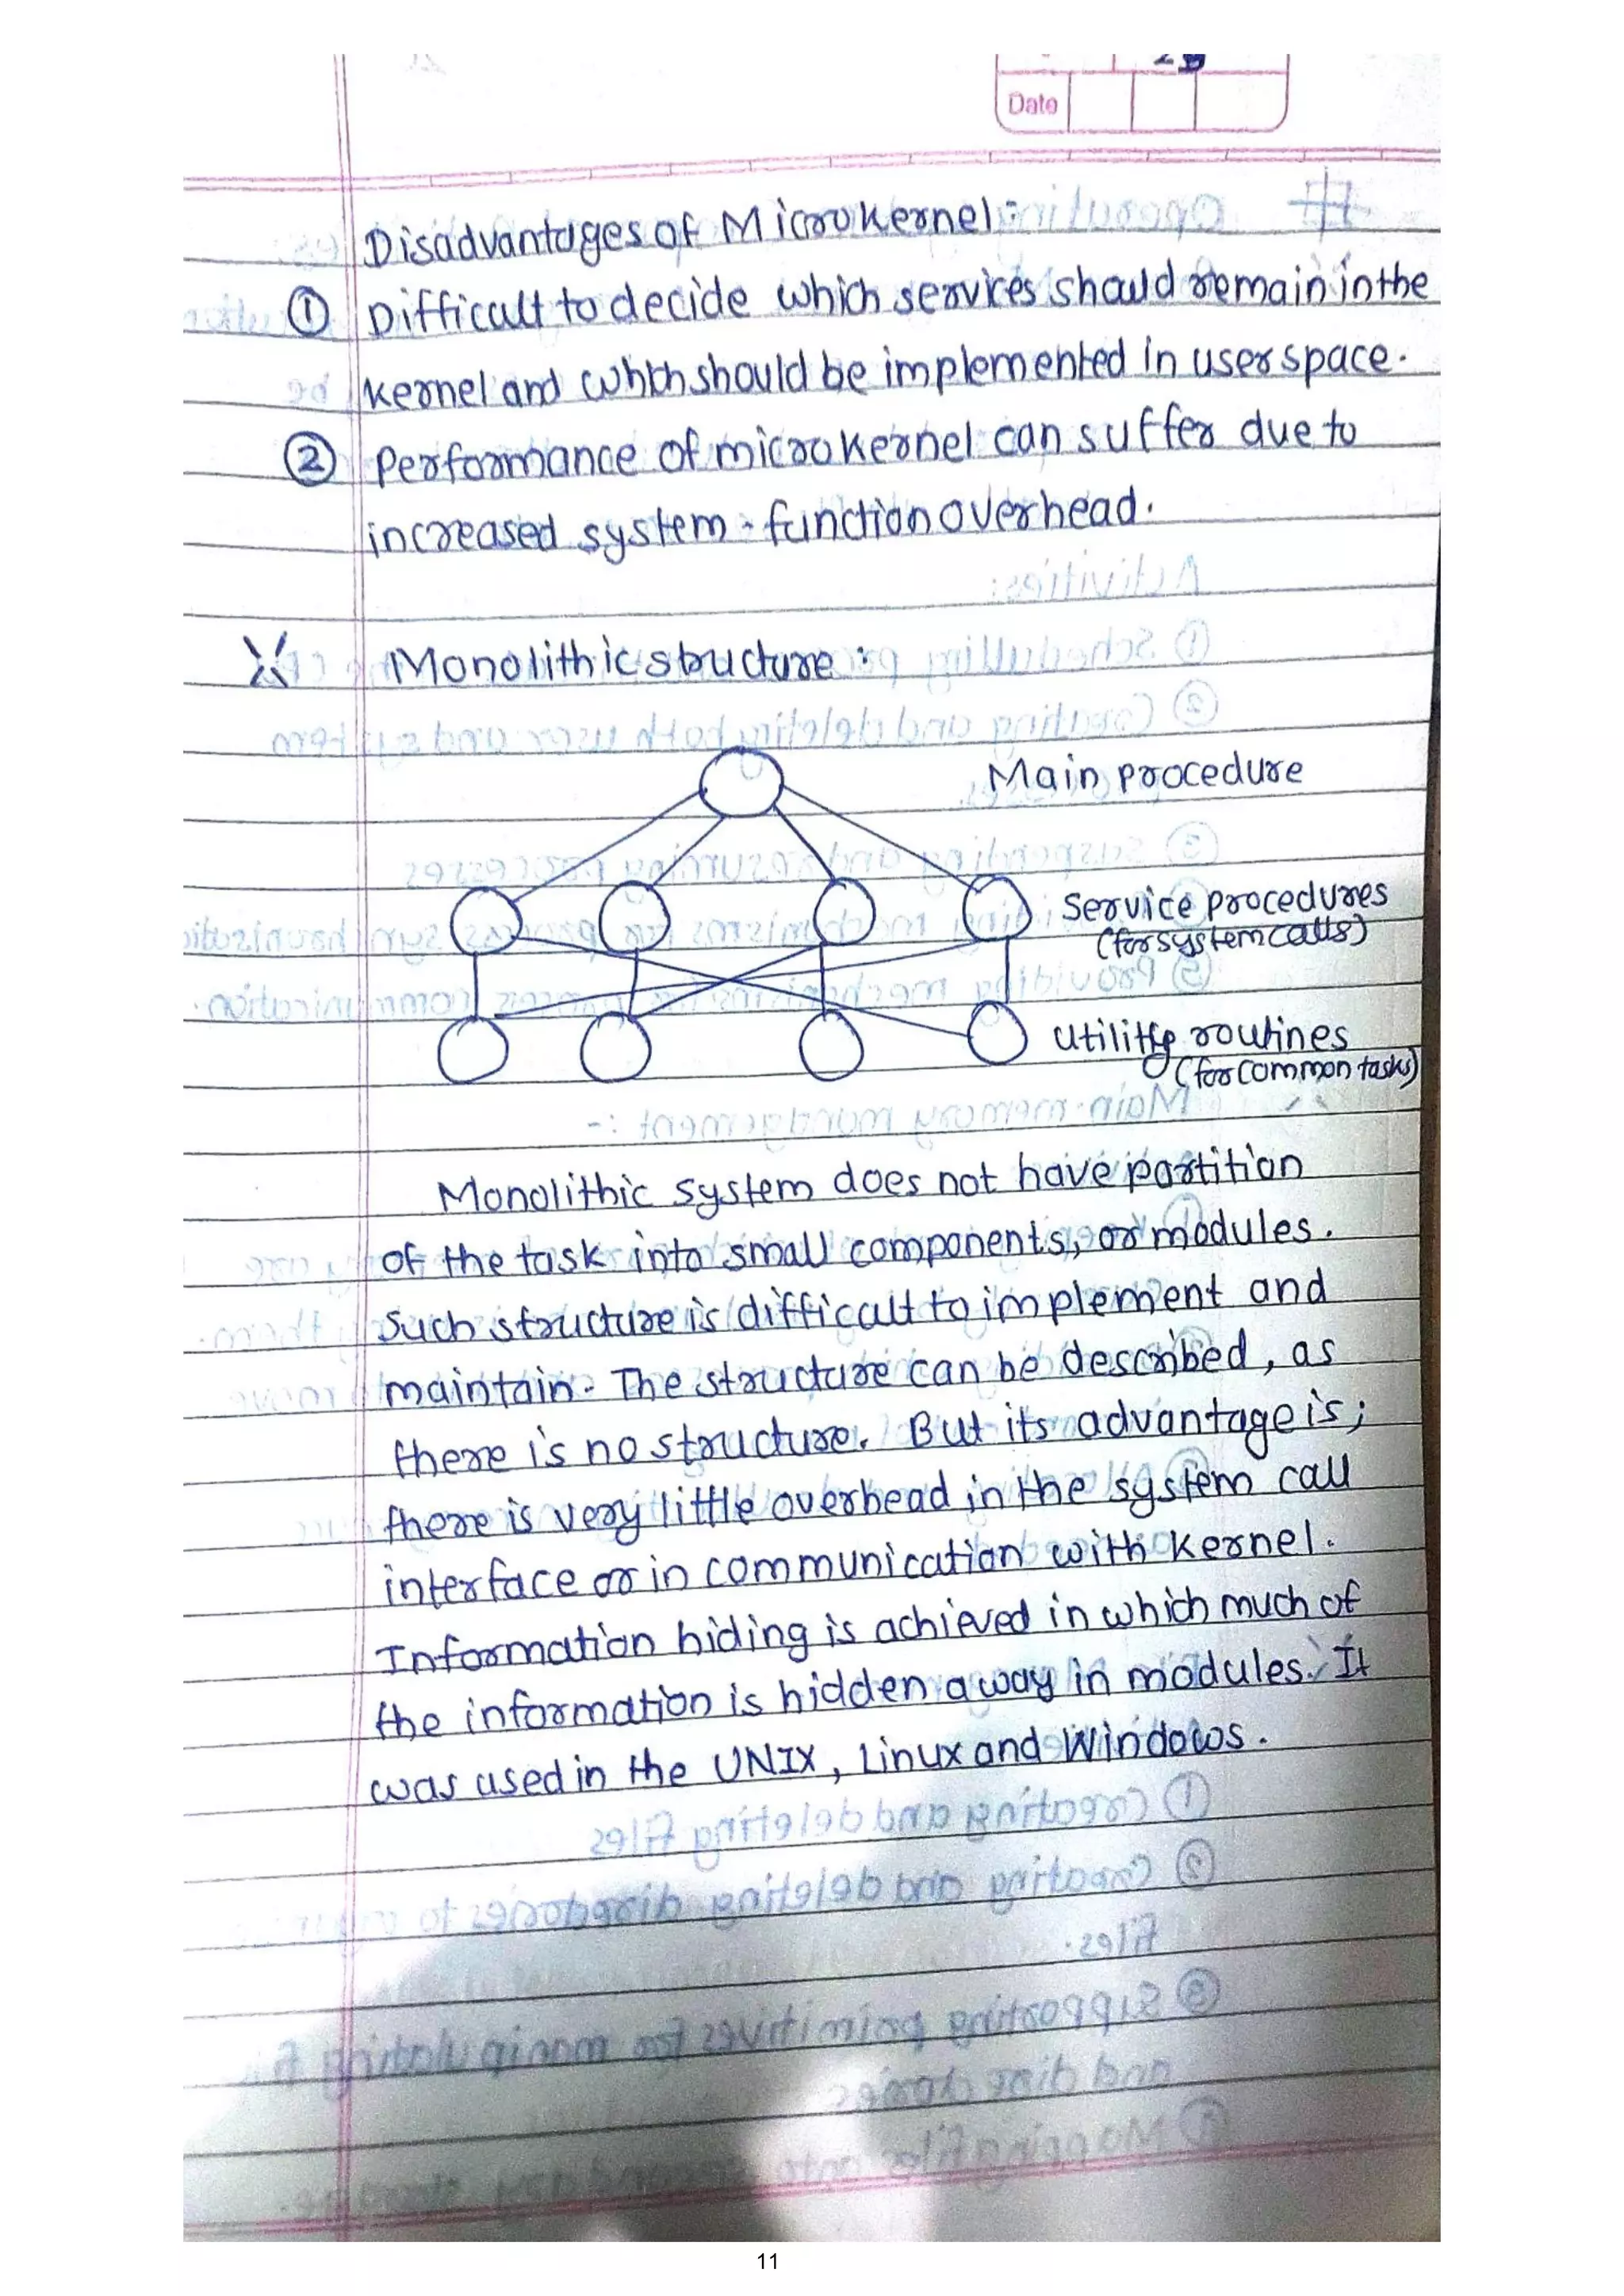 Date
Disadvantages of Microkernel:
① Difficult to decide which services should remain in the
kernel and which should be implemented in user space.
② Performance of microkernel can suffer due to
increased system-function overhead.
Monolithic structure:
Main procedure
Service procedures
(for system calls)
Utility routines
(for common tasks)
Monolithic system does not have partition
of the task into small components, or modules.
Such structure is difficult to implement and
maintain. The structure can be described, as
there is no structure. But its advantage is;
there is very little overhead in the system call
interface or in communication with kernel.
Information hiding is achieved in which much of
the information is hidden away in modules. It
was used in the UNIX, Linux and Windows.
11